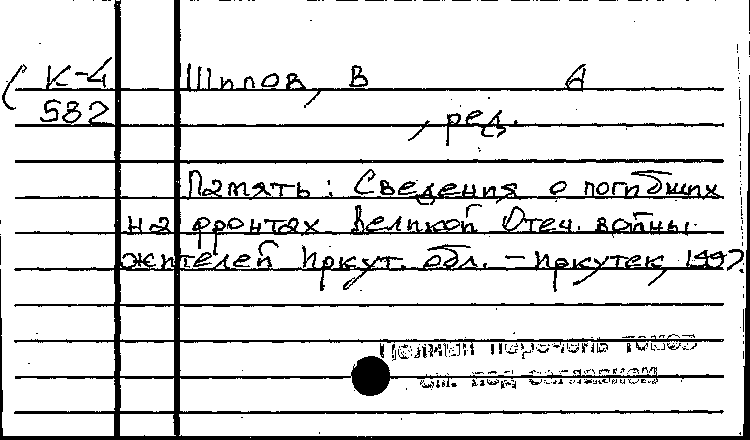 К-4 Шипов, В А
582 , ред.
Память: Сведения о погибших
на фронтах Великой Отеч. войны
жителей Иркут. обл. – Иркутск, 199
Полный перечень томов
см. под заглавием